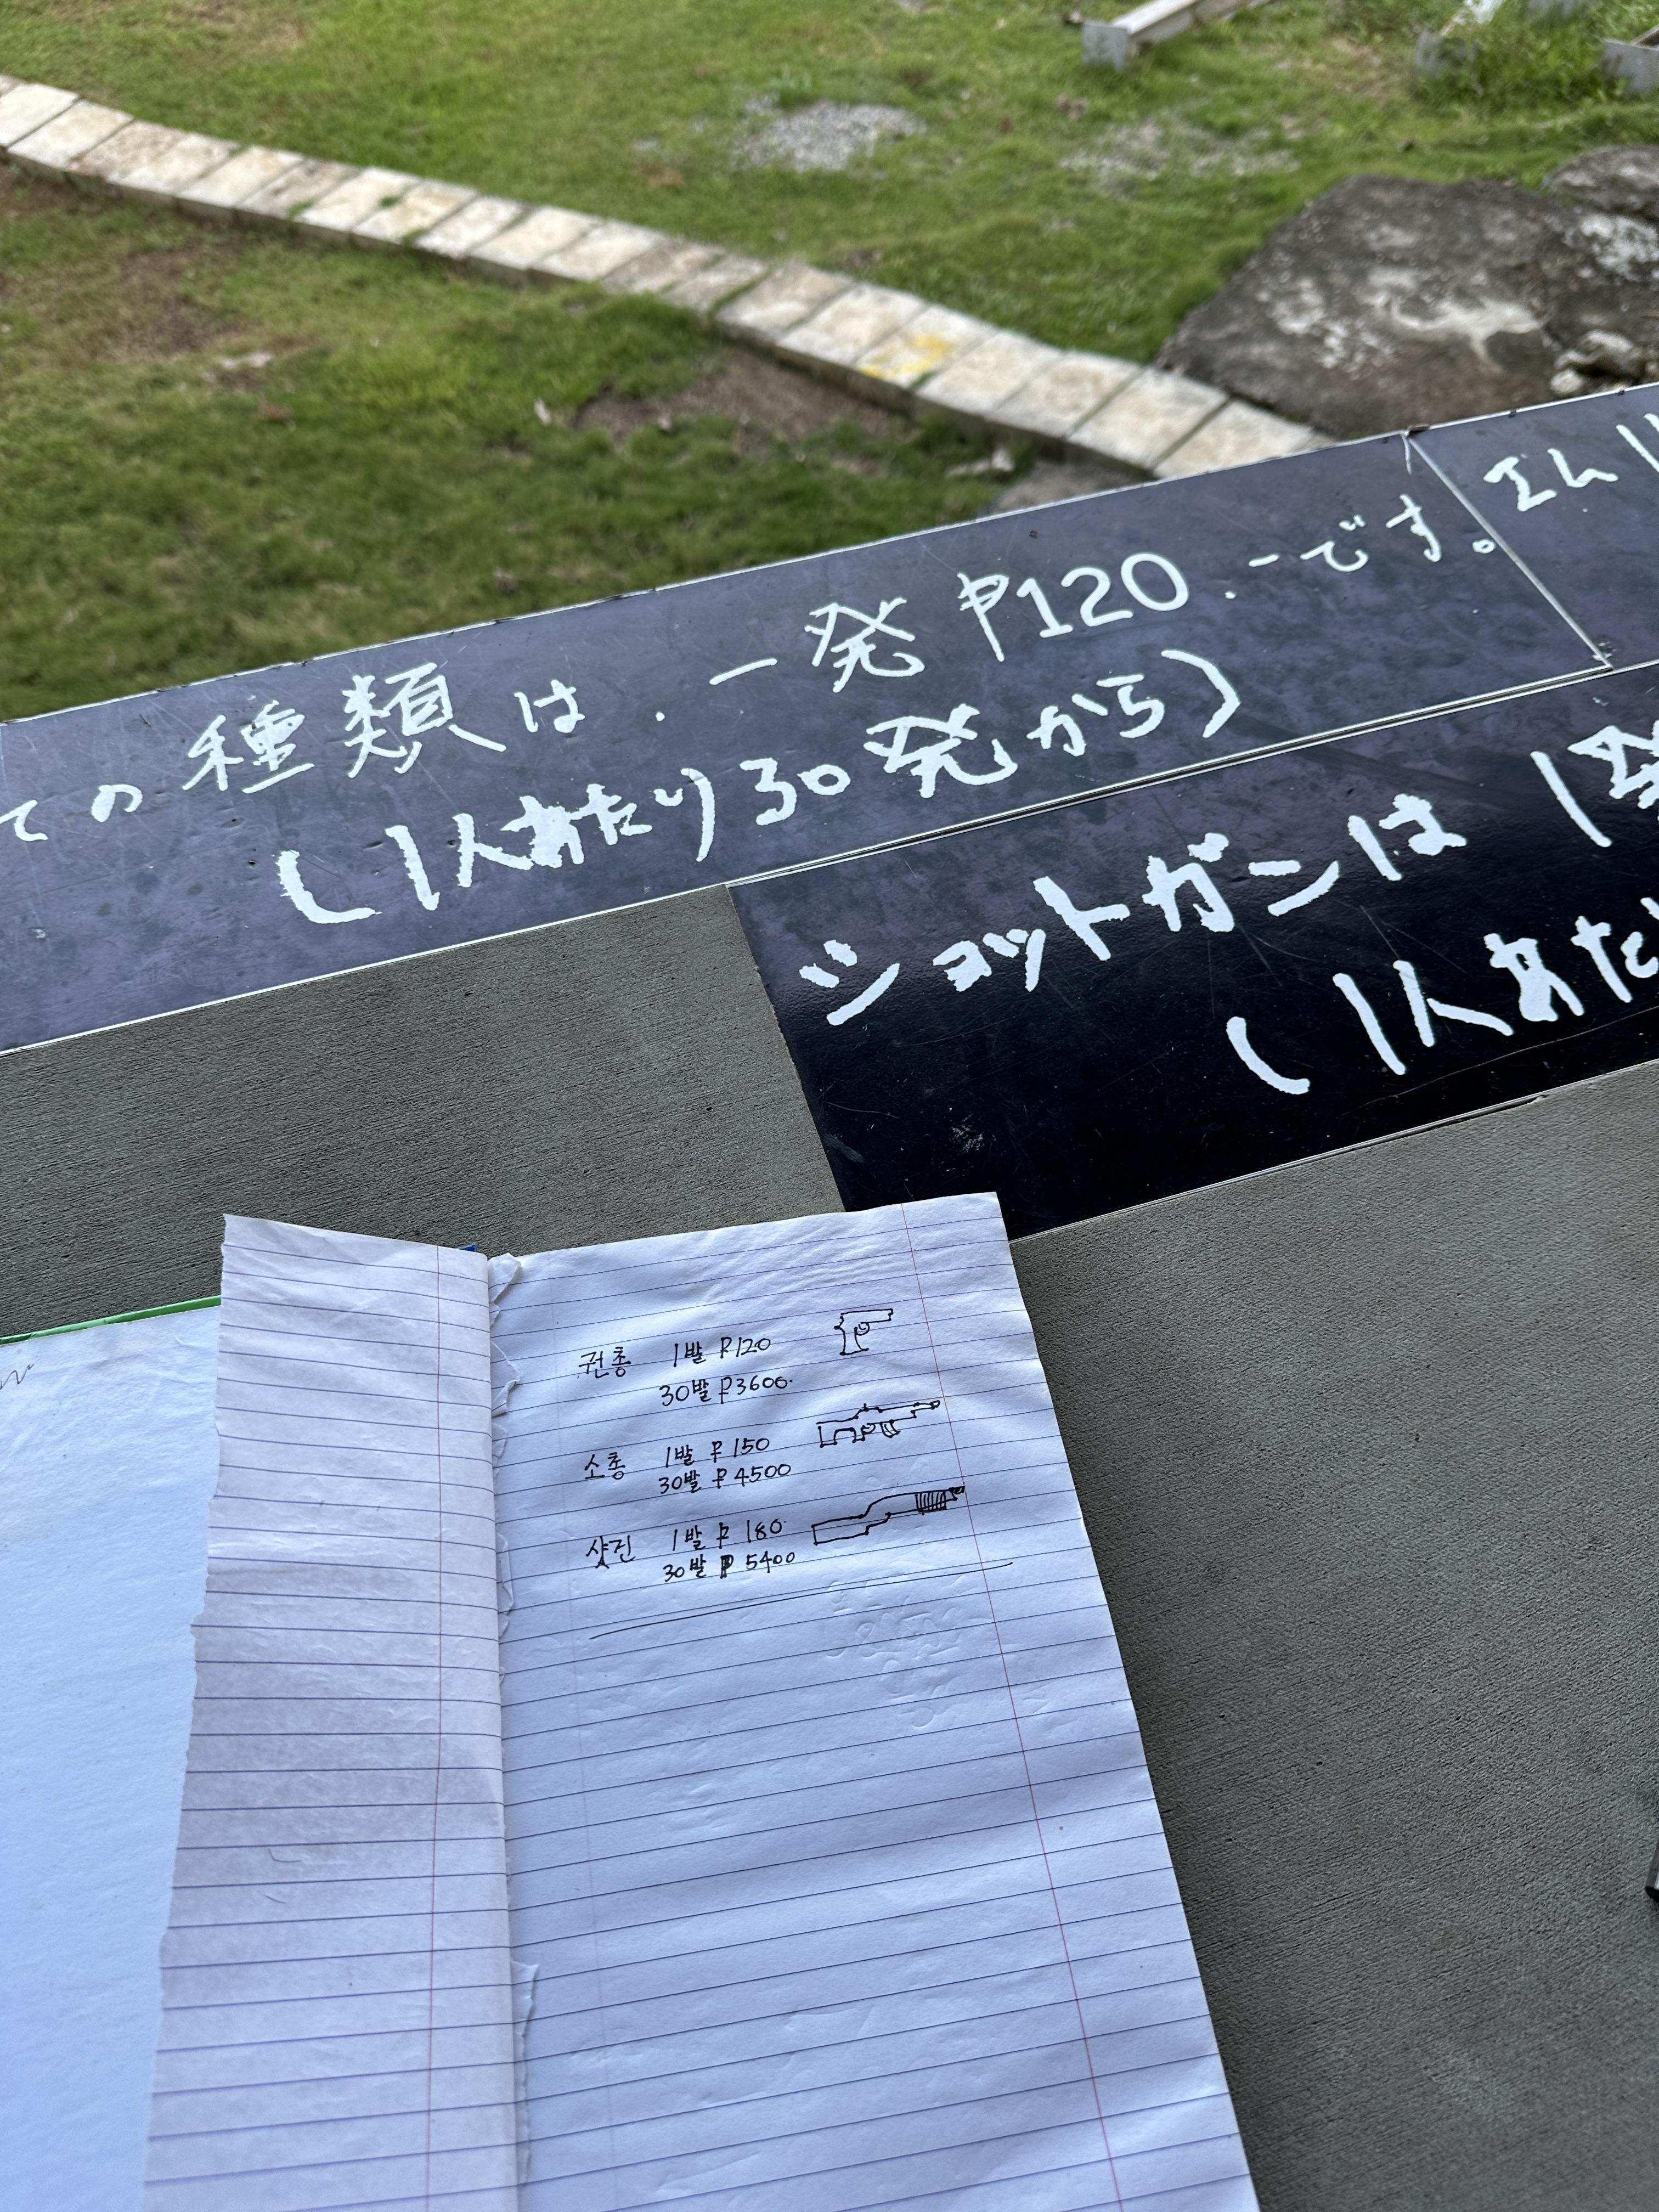 ての種類は、一発₱120.-です。
(1人あたり30発から)
エム
ショットガンは 1発
(1人あた
권총 1발 ₱120
30발 ₱3600.
소총 1발 ₱150
30발 ₱4500
샷건 1발 ₱180
30발 ₱5400